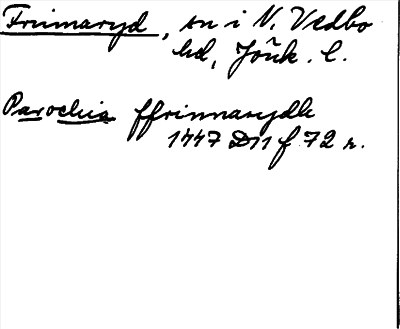 Frinnaryd, sn i N. Vedbo
hd, Jönk. l.
Parochia ffrinnarydh
1447 D11 f 72 r.